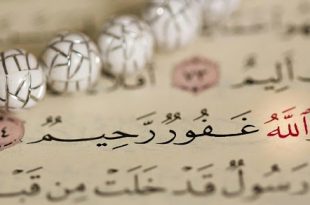 أَلِيمٌ ٧٣ أَفَلَا
اللَّهُ غَفُورٌ رَّحِيمٌ
رَسُولٌ قَدْ خَلَتْ مِن قَبْ